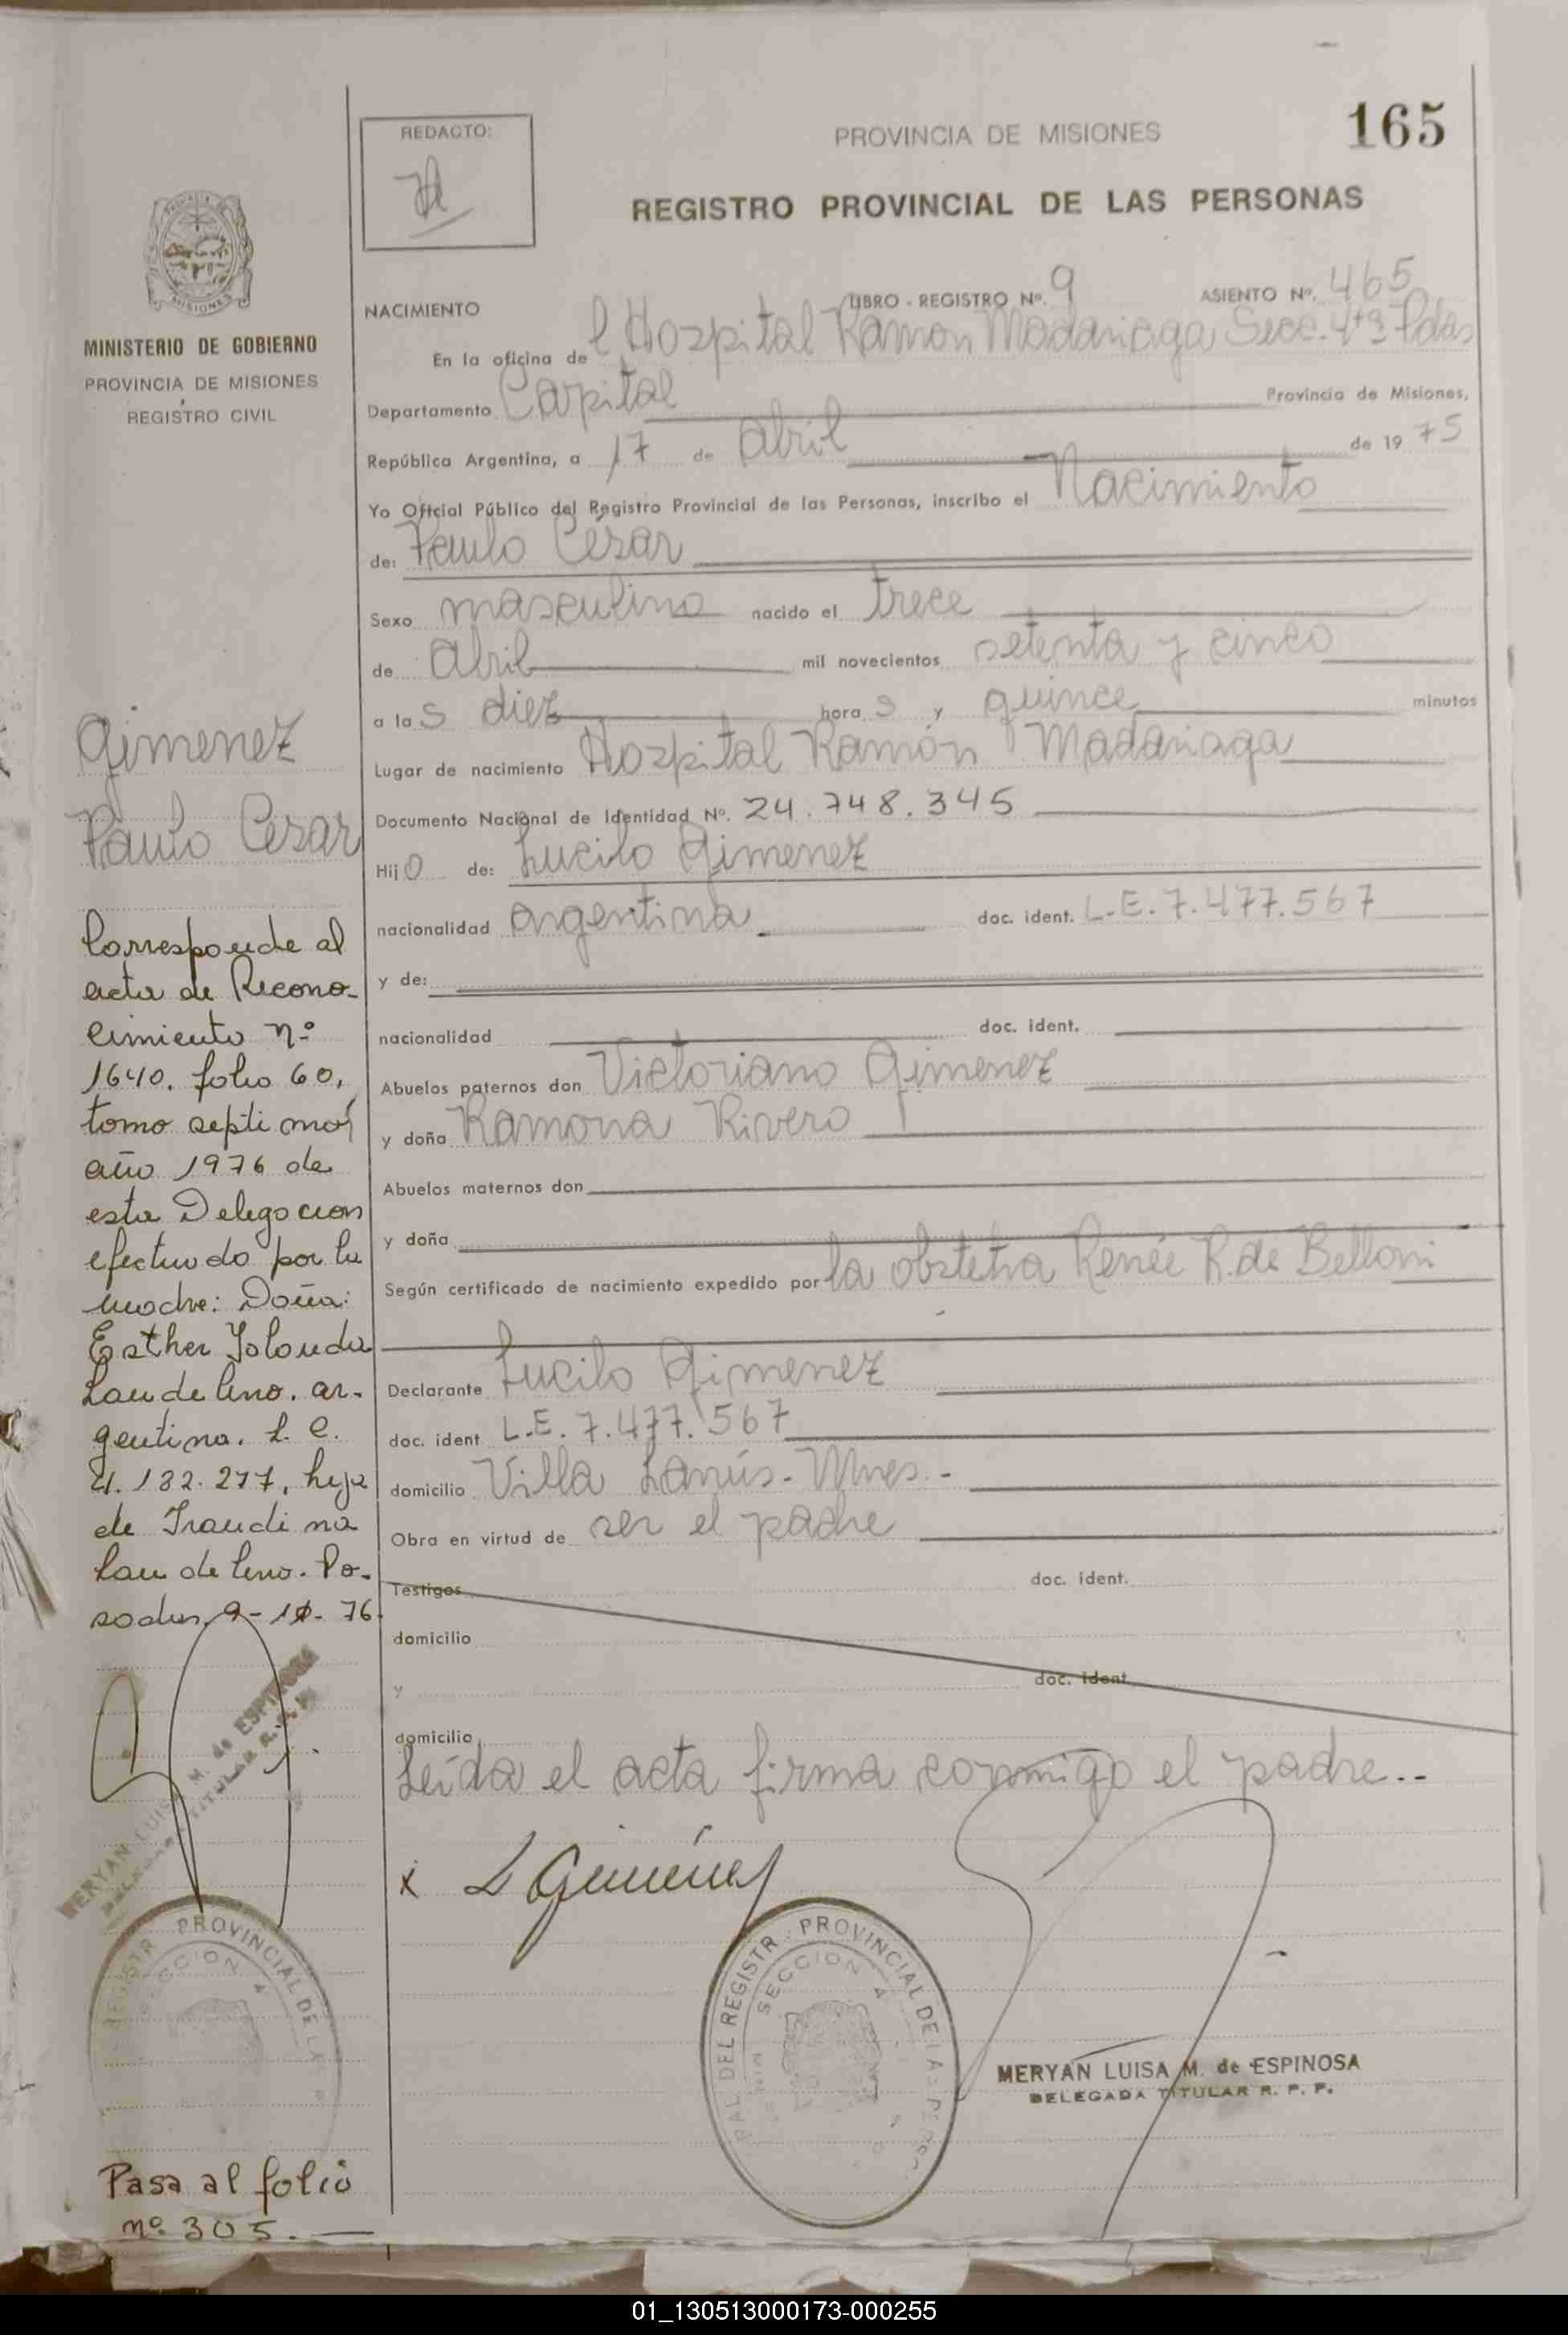 165
REDACTO:
PROVINCIA DE MISIONES
REGISTRO PROVINCIAL DE LAS PERSONAS
MISIONES
MINISTERIO DE GOBIERNO
PROVINCIA DE MISIONES
REGISTRO CIVIL
Gimenez
Paulo Cesar
Corresponde al
acta de Recono-
cimiento nº
1640. folio 60,
tomo septimo,
año 1976 de
esta Delegacion
efectuado por la
madre: Doña:
Esther Yolanda
Landelino. ar-
gentina. L. C.
4.182.277, hija
de
Landelino. Po-
sadas, 9- -76.
MERYAN LUISA M. de ESPINOSA
TITULAR R. P. P.
REGISTR PROVINCIAL DE LA
SECCION 4
Pasa al folio
nº 305.
NACIMIENTO LIBRO - REGISTRO Nº. 9 ASIENTO Nº. 465
En la oficina de l Hospital Ramon Madariaga Secc. 4ta Pdas
Departamento Capital Provincia de Misiones,
República Argentina, a 17 de Abril de 19 75
Yo Oficial Público del Registro Provincial de las Personas, inscribo el Nacimiento
de: Paulo Cesar
Sexo masculino nacido el trece
de Abril mil novecientos setenta y cinco
a las diez horas y quince minutos
Lugar de nacimiento Hospital Ramón Madariaga
Documento Nacional de Identidad Nº. 24.748.345
Hijo de: Lucilo Gimenez
nacionalidad argentina. doc. ident. L.E. 7.477.567
y de:
nacionalidad doc. ident.
Abuelos paternos don Victoriano Gimenez
y doña Ramona Rivero
Abuelos maternos don
y doña
Según certificado de nacimiento expedido por la obstetra Renée R. de Belloni
Declarante Lucilo Gimenez
doc. ident L.E. 7.477.567
domicilio Villa Lanús - Mnes.-
Obra en virtud de ser el padre
Testigos doc. ident.
domicilio
y doc. ident
domicilio
Leída el acta firma conmigo el padre..
x L Gimenez
DEL REGISTR PROVINCIAL DE LAS PERSO
SECCION 4
MERYAN LUISA M. de ESPINOSA
DELEGADA TITULAR R. P. P.
01_130513000173-000255